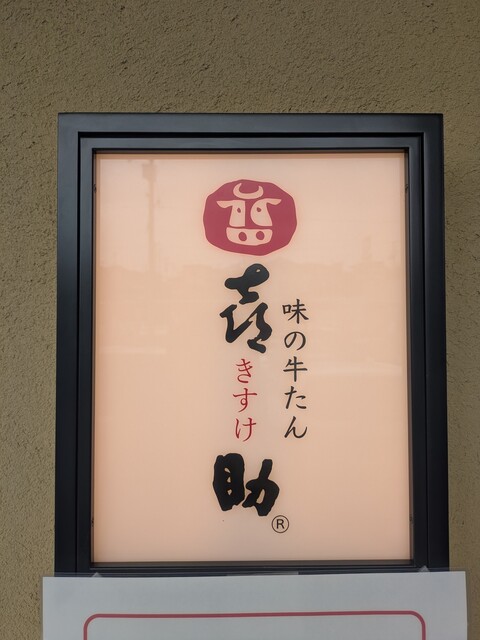 味の牛たん
喜
きすけ
助
®